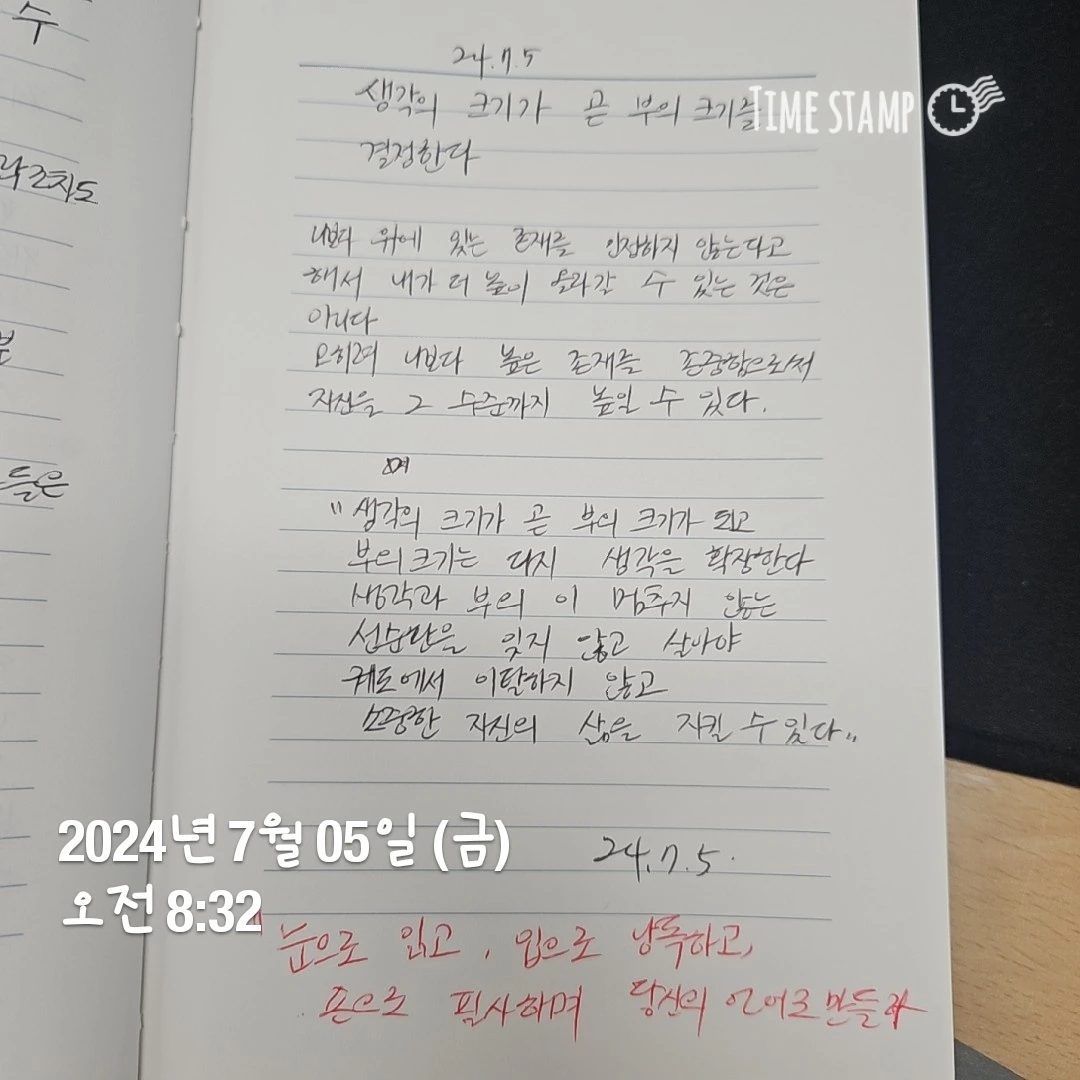 수
라조차도
분
들은
24.7.5
생각의 크기가 곧 부의 크기를
결정한다
나보다 위에 있는 존재를 인정하지 않는다고
해서 내가 더 높이 올라갈 수 있는 것은
아니다
오히려 나보다 높은 존재를 존중함으로서
자신을 그 수준까지 높일 수 있다.
며
"생각의 크기가 곧 부의 크기가 되고
부의 크기는 다시 생각을 확장한다
생각과 부의 이 멈추지 않는
선순환을 잊지 않고 살아야
궤도에서 이탈하지 않고
소중한 자신의 삶을 지킬 수 있다"
24.7.5.
"눈으로 읽고, 입으로 낭독하고,
손으로 필사하며 당신의 언어로 만들라
TIME STAMP
2024년 7월 05일 (금)
오전 8:32